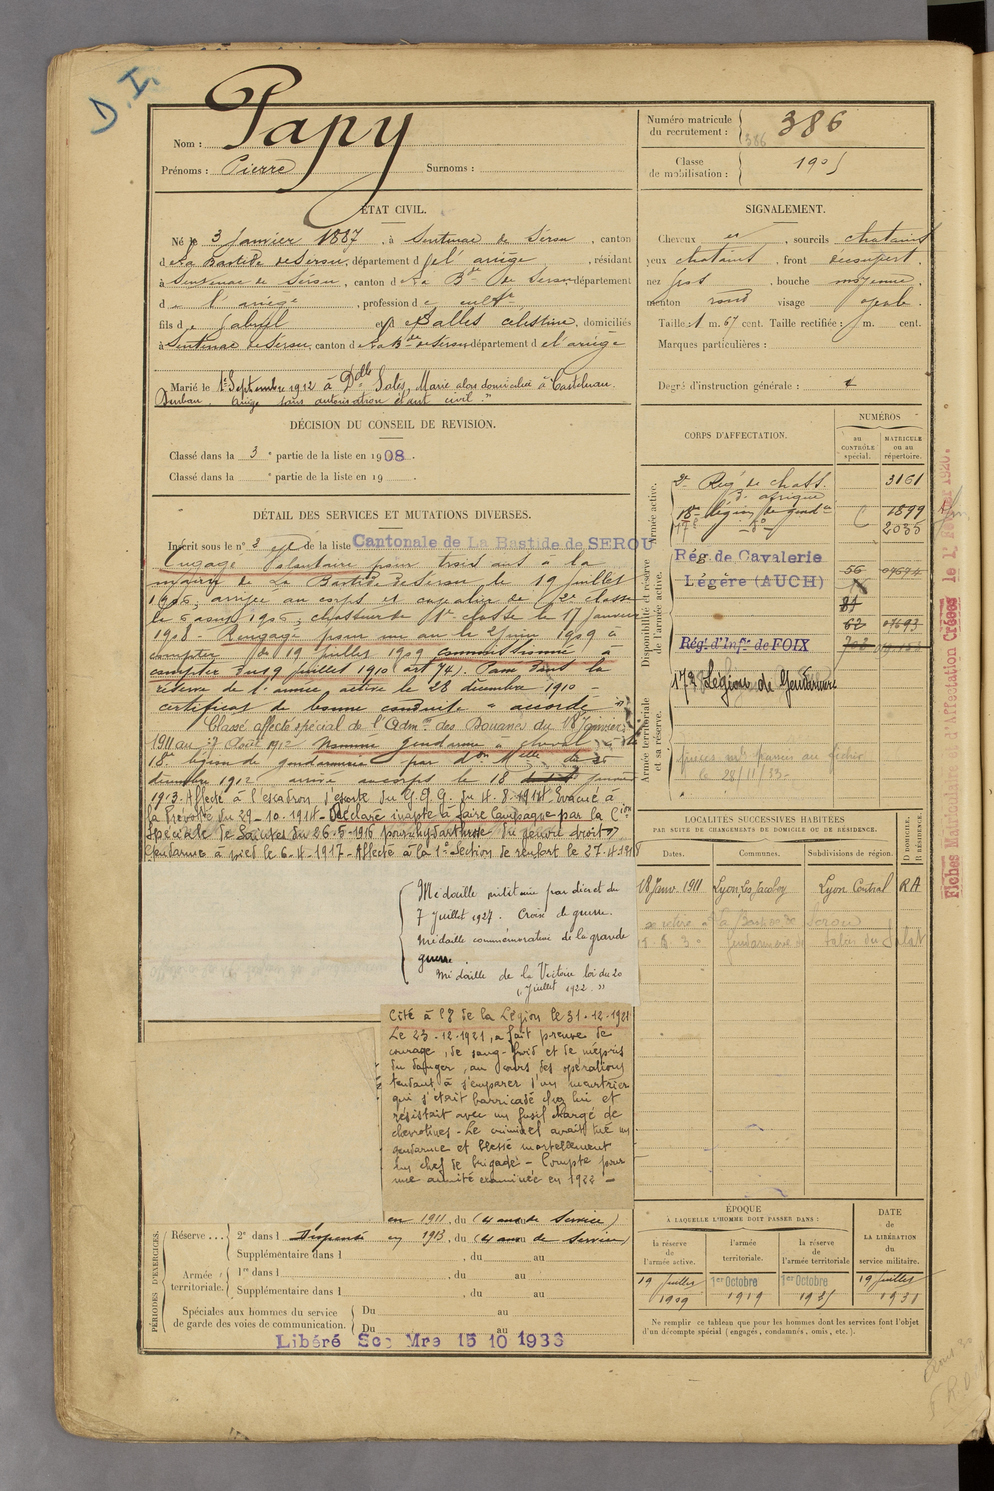 D. I.
Nom : Papy
Prénoms : Pierre Surnoms :
Numéro matricule du recrutement : 386 386
Classe de mobilisation : 1905
ÉTAT CIVIL.
Né le 3 Janvier 1887, à Sentenac de Sérou, canton
d La Bastide de Serou, département d l'ariège, résidant
à Sentenac de Sérou, canton d La Bde de Serou département
d l'ariège, profession d cultr
fils d Gabriel et d Balles Celestine, domiciliés
à Sentenac de Serou, canton d La Bde de Serou département d l'ariège
Marié le 1er Septembre 1912 à Dlle Salés, Marie alors domiciliée à Castelnau
Durban, Ariège sans autorisation étant civil."
SIGNALEMENT.
Cheveux et, sourcils chatains
yeux chatains, front découvert,
nez gros, bouche moyenne,
menton rond visage ovale.
Taille : 1 m. 67 cent. Taille rectifiée : m. cent.
Marques particulières :
Degré d'instruction générale :
DÉCISION DU CONSEIL DE REVISION.
Classé dans la 3e partie de la liste en 1908.
Classé dans la e partie de la liste en 19 .
CORPS D'AFFECTATION.
NUMÉROS
au CONTRÔLE spécial.
MATRICULE ou au répertoire.
Armée active.
2e Rég. de chass. d'afrique 3161
18e légion de gendie 1899
17e do 2035
Disponibilité et réserve de l'armée active.
Rég. de Cavalerie
Légère (AUCH)
56
81
62 07693
Régt d'Infie de FOIX
Armée territoriale et sa réserve.
17e Légion de Gendarmerie
le 28/11/33.
DÉTAIL DES SERVICES ET MUTATIONS DIVERSES.
Inscrit sous le n° 3 de la liste Cantonale de La Bastide de SEROU
Engagé Volontaire pour trois ans à la
mairie de La Bastide de Serou le 19 juillet
1906, arrivé au corps et cavalier de 2e classe
le 6 aout 1906, chasseur de 1re classe le 17 Janvier
1908 - Rengagé pour un an le 2 juin 1909 à
compter du 19 juillet 1909 commissionné à
compter du 19 juillet 1910 (art 74). Passé dans la
réserve de l'armée active le 28 décembre 1910 -
certificat de bonne conduite "accordé"
Classé affecté spécial de l'Admon des Douanes du 18 Janvier
1911 au 7 Août 1912 Nommé gendarme à cheval à la
18e légion de gendarmerie par Don Mlle du 26
décembre 1912 arrivé au corps le 18 janvier
1913. Affecté à l'escadron d'escorte du G.Q.G. du 4.8.1914. Evacué à
la Prévôté du 29-10-1914 - Déclaré inapte à faire Campagne par la Cion
Spéciale de Saintes du 26-5-1916 pour hydarthrose du genou droit
Gendarme à pied le 6-4-1917 - Affecté à la 1° Section de renfort le 27-4-1918
Médaille militaire par décret du
7 Juillet 1927. Croix de guerre.
Médaille commémorative de la grande
guerre.
Médaille de la Victoire loi du 20
Juillet 1922."
Cité à l'O de la Légion le 31-12-1921
Le 23-12-1921, a fait preuve de
courage, de sang-froid et de mépris
du danger, au cours des opérations
tendant à s'emparer d'un meurtrier
qui s'était barricadé chez lui et
résistait avec un fusil chargé de
chevrotines - Le criminel avait tué un
gendarme et blessé mortellement
un chef de brigade - Compte pour
une annuité examinée en 1922 -
LOCALITÉS SUCCESSIVES HABITÉES
PAR SUITE DE CHANGEMENTS DE DOMICILE OU DE RÉSIDENCE.
Dates. Communes. Subdivisions de région. D DOMICILE, R RÉSIDENCE.
18 Janv. 1911 Lyon, Lyon Central RA
se retire à La Bastide de Serou
gendarmerie de Salies du Salat
PÉRIODES D'EXERCICES.
en 1911, du (4 ans de Service)
Réserve ... 2e dans l Dispensé en 1913, du (4 ans de Service)
Supplémentaire dans l , du au
Armée territoriale. 1re dans l , du au
Supplémentaire dans l , du au
Spéciales aux hommes du service de garde des voies de communication. Du au
Du au
Libéré Ser Mre 15 10 1936
ÉPOQUE
À LAQUELLE L'HOMME DOIT PASSER DANS :
la réserve de l'armée active.
l'armée territoriale.
la réserve de l'armée territoriale
DATE de LA LIBÉRATION du service militaire.
19 juillet 1909
1er Octobre 1919
1er Octobre 1925
19 juillet 1931
Ne remplir ce tableau que pour les hommes dont les services font l'objet
d'un décompte spécial (engagés, condamnés, omis, etc.).
Fiches Matriculaire et d'Affectation Créées le 1er Février 1920.